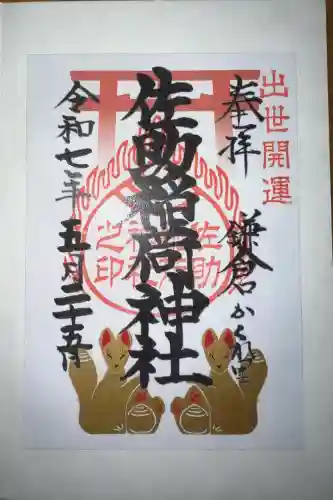 出世開運
奉拝
鎌倉かくれ里
佐助稲荷神社
令和七年五月二十五日
佐助
稲荷
神社
之印